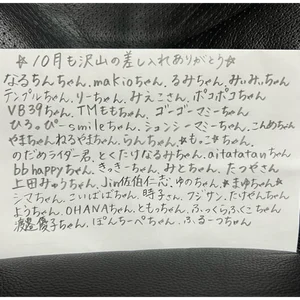 ☆10月も沢山の差し入れありがとう☆
なるちんちゃん、makioちゃん、るみちゃん、みぃみぃちゃん
テンプルちゃん、りーちゃん、みえこさん、ポコポコちゃん
VB39ちゃん、TMももちゃん、ゴーゴーマミーちゃん
ひろ。ぴ smileちゃん、ションシーマミーちゃん、こんめちゃん
やまちゃんねるやまちゃん、らんちゃん、✳もっこ✳ちゃん、
のだめライダー君、とくたけなるみちゃん、aitatatanちゃん
bbhappyちゃん、きっきーちゃん、みとちゃん、たつやさん
上田みゅうちゃん、Jin佐伯仁志、ゆのちゃん、★まゆちゃん★
シマちゃん、こいばばちゃん、時子さん、フジサン、たけやんちゃん
ようちゃん、OHANAちゃん、ともっちゃん、ふっくらふくこちゃん
渡邉優子ちゃん、ぽんちーぺちゃん、ふるーつちゃん